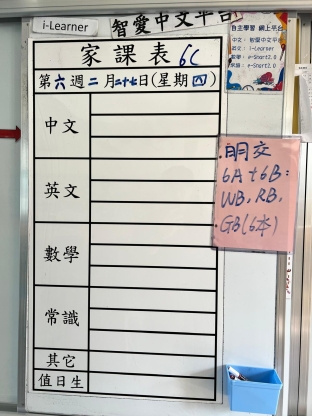 i-Learner
智愛中文平台
家課表 6C
第六週二月二十七日(星期四)
中文
英文
數學
常識
其它
值日生
自主學習 網上平台
中文: 智愛中文平台
英文: i-Learner
數學: e-Smart2.0
常識: e-Smart2.0
·明交
6A+6B:
WB, RB,
·GB(6本)